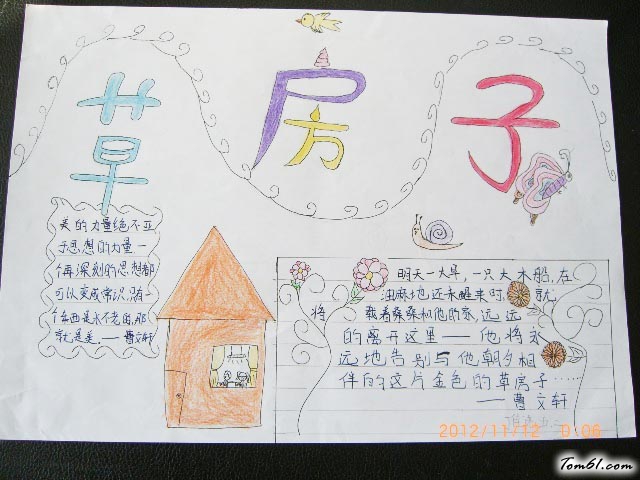 草房子
美的力量绝不亚
于思想的力量一
个再深刻的思想都
可以变成常识,只有一
个东西是永不老的,那
就是美。——曹文轩
明天一大早,一只大木船,在
油麻地还未醒来时,就
将载着桑桑和他的家,远远
的离开这里——他将永
远地告别与他朝夕相
伴的这片金色的草房子……
——曹文轩
2012/11/12 0:06
Tom61.com